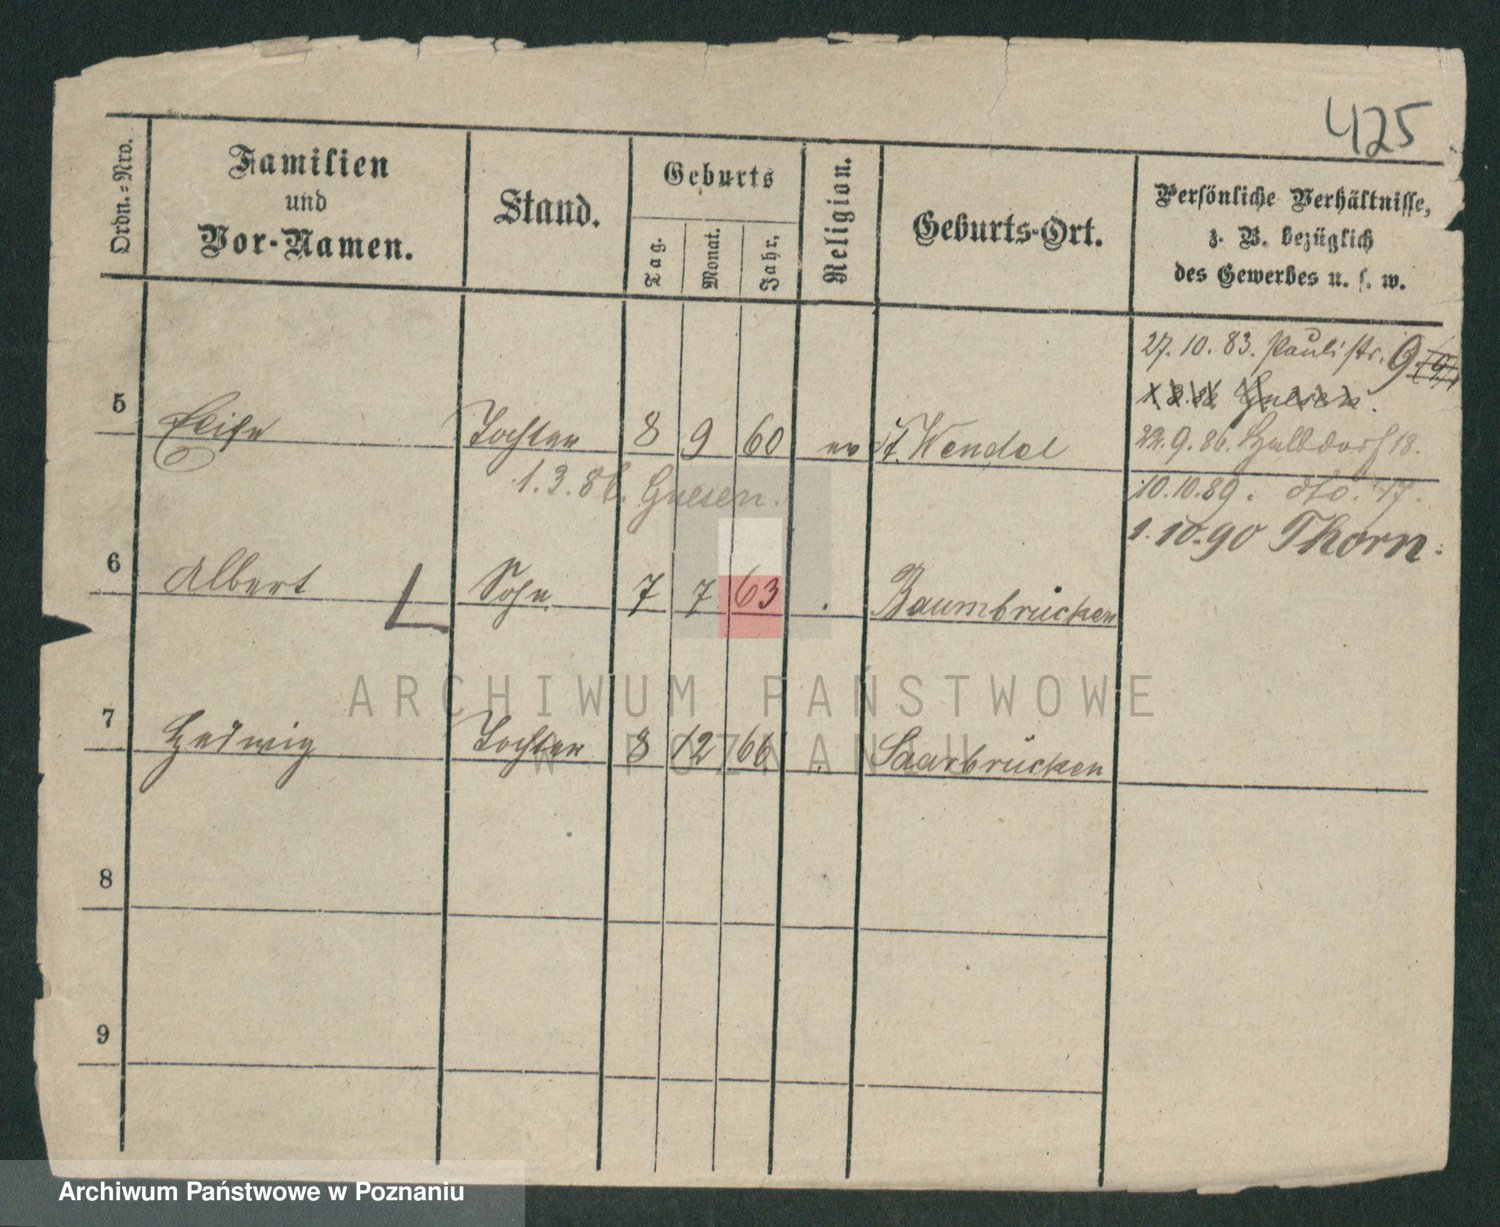 425
Ordn.=Nro.
Familien
und
Vor-Namen.
Stand.
Geburts
Tag.
Monat.
Jahr.
Religion.
Geburts-Ort.
Persönliche Verhältnisse,
z. B. bezüglich
des Gewerbes u. s. w.
27. 10. 83. Paulistr. 9
Gnesen.
5 Elise Tochter 8 9 60 ev St. Wendel
22. 9. 86. Halbdorf 18.
1. 3. 86. Gnesen.
10. 10. 89. dto. 17.
1. 10. 90 Thorn.
6 Albert Sohn 7 7 63 Baumbrücken
7 Hedwig Tochter 8 12 66 Saarbrücken
8
9
ARCHIWUM PAŃSTWOWE
W POZNANIU
Archiwum Państwowe w Poznaniu